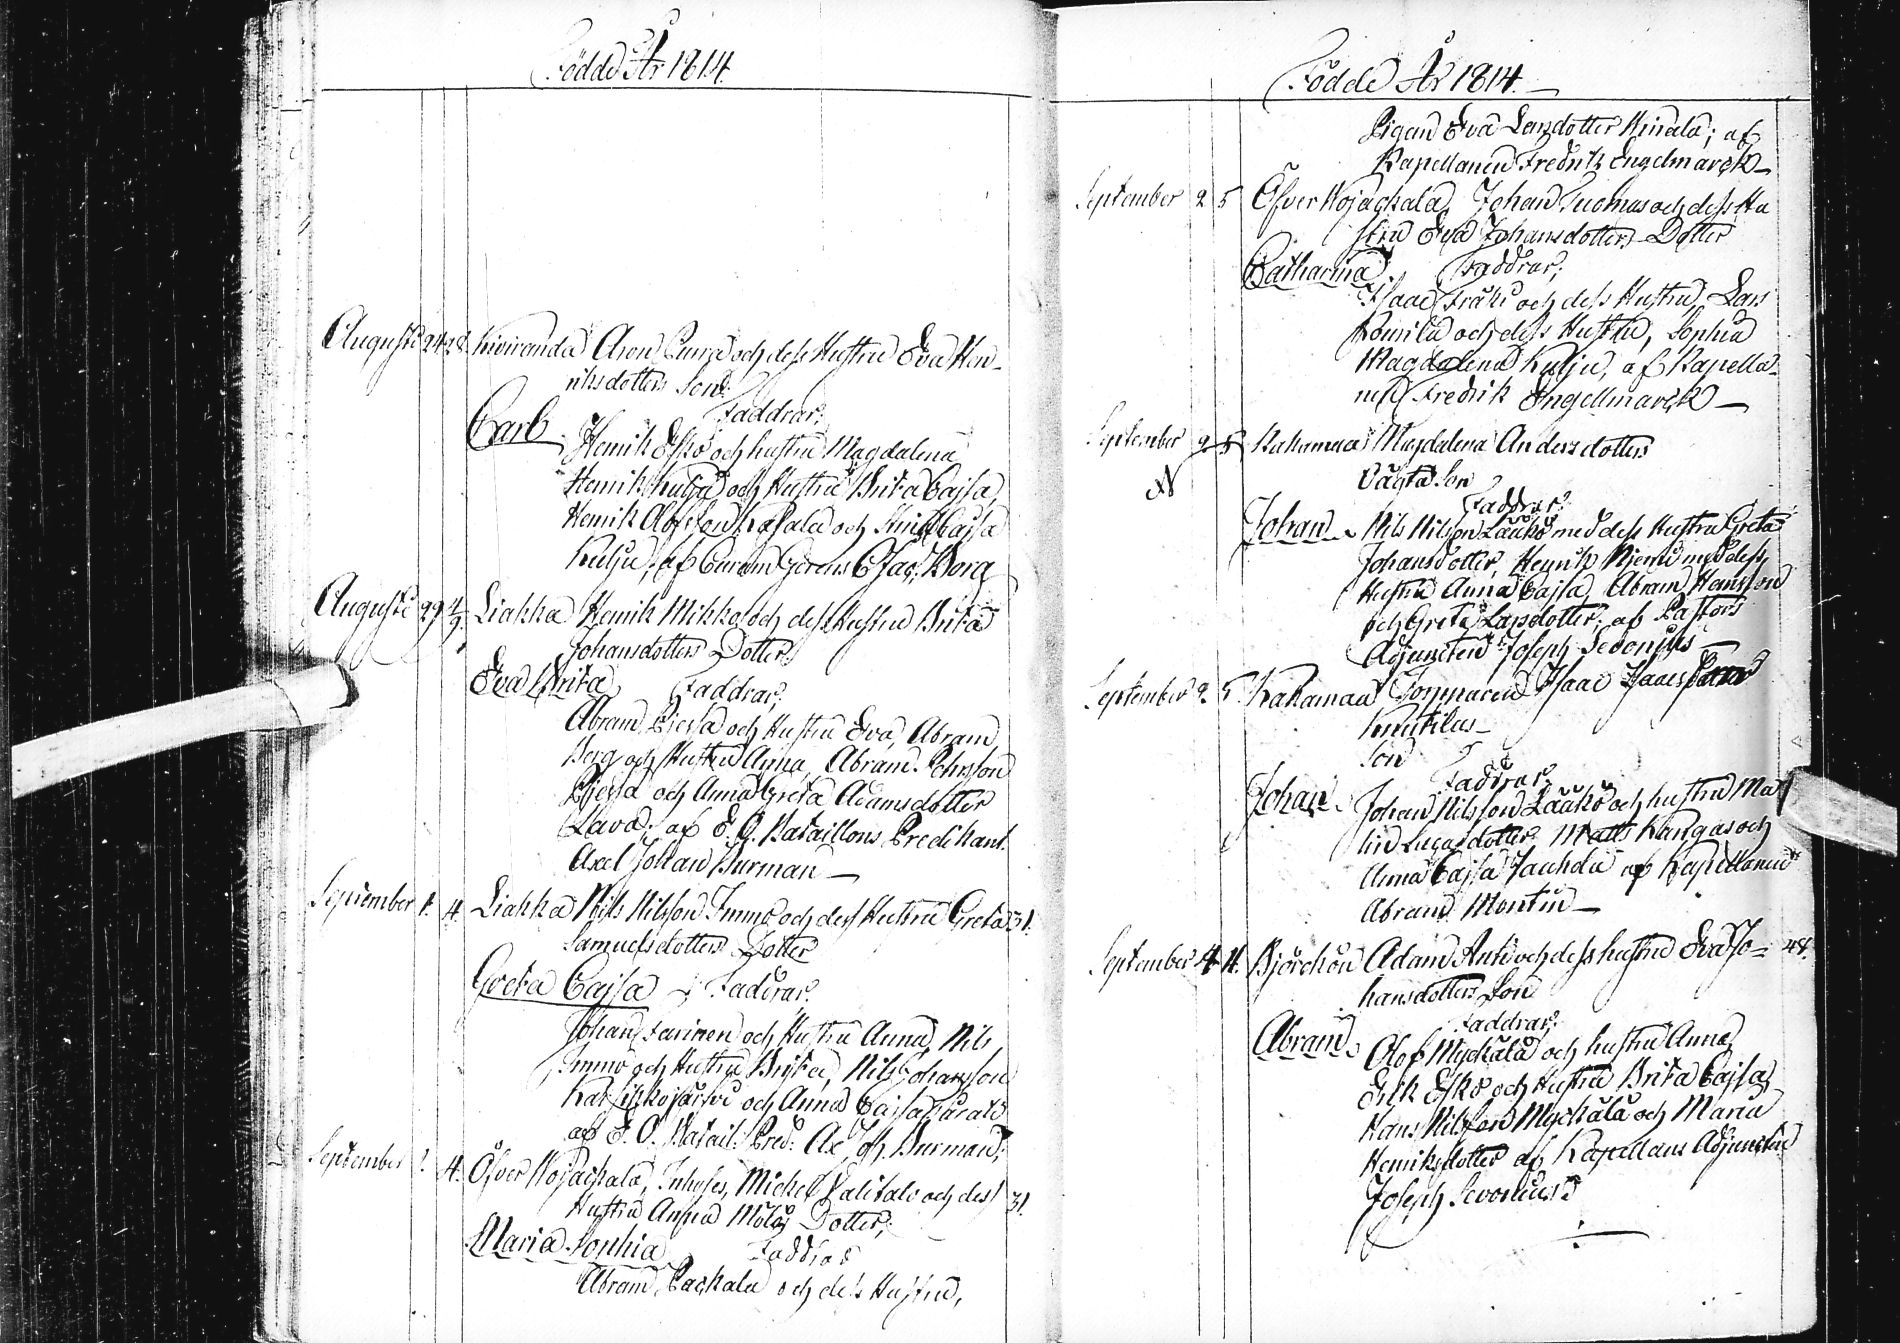 Födde År 1814.
Augusti 24 28. Kiviranda Aron Purra och dess Hustru Eva Hen-
riksdotters Son.
Faddrar:
Carl
Henrik Esko och hustru Magdalena
Henrik Kulju och Hustru Brita Cajsa,
Henrik Olofsson och Cajsa
Kulju, af Esac: Borg
Augusti 29 4/9. Liakka Henrik Mikko och dess Hustru Brita
Johansdotters Dotter.
Eva Brita Faddrar;
Abram och Hustru Eva, Abram
Berg och Hustru Anna, Abram
och Anna Greta Adamsdotter
Lava; af E. O. Bataillons Predikant.
Axel Johan Burman —
September 1. 4. Liakka Nils Nilsson Immo och dess Hustru Greta 31.
Samuelsdotters Dotter
Greta Cajsa Faddrar.
Johan och Hustru Anna, Nils
Immo och Hustru Brita, Nils Johansson
och Anna Cajsa
af E. O. Batail: Pred: Ax Joh. Burman;
September 4. Öfver Wojackala, Inhyses, Michel Valitalo och dess 31.
Hustru Anna Dotter,
Maria Sophia Faddrar
Abram Packala och dess Hustru,
Födde År 1814. —
Pigan Eva Larsdotter Hinala; af
Kapellanen Fredrik Engelmarck —
September 2 5 Öfver Wojackala Johan Tuomas och dess Hu
stru Eva Johansdotters Dotter
Catharina. Faddrar;
Isaac och dess Hustru, Lars
och dess Hustru, Sophia
Magdalena Kulju, af Kapella-
nen Fredrik Engellmarck —
September 2 5 Kakamaa Magdalena Andersdotters
Oägta Son
Faddrar:
Johan Nils Nilsson Lääkö med dess Hustru Greta
Johansdotter, Henrik Niemi med dess
Hustru Anna Cajsa, Abram Hansson
och Greta Larsdotter; af Pastors
Adjuncten Joseph Sevonius —
September 2. 5. Kakamaa Isaac Isaacsson
Knutilas
Son
Faddrar
Johan. Johan Nilsson Lääkö och hustru Ma
lin Lucasdotter Matts Kangas och
Anna Cajsa af Kapellanen
Abram Montin —
September 4 4. Björckön Adam Anti och dess hustru Eva Jo- 48.
hansdotters Son
Faddrar:
Abram Olof Myckälä och hustru Anna,
Erik Esko och Hustru Brita Cajsa,
Hans Nilsson Myckälä och Maria
Henriksdotter af Kapellans Adjuncten
Joseph Sevonius